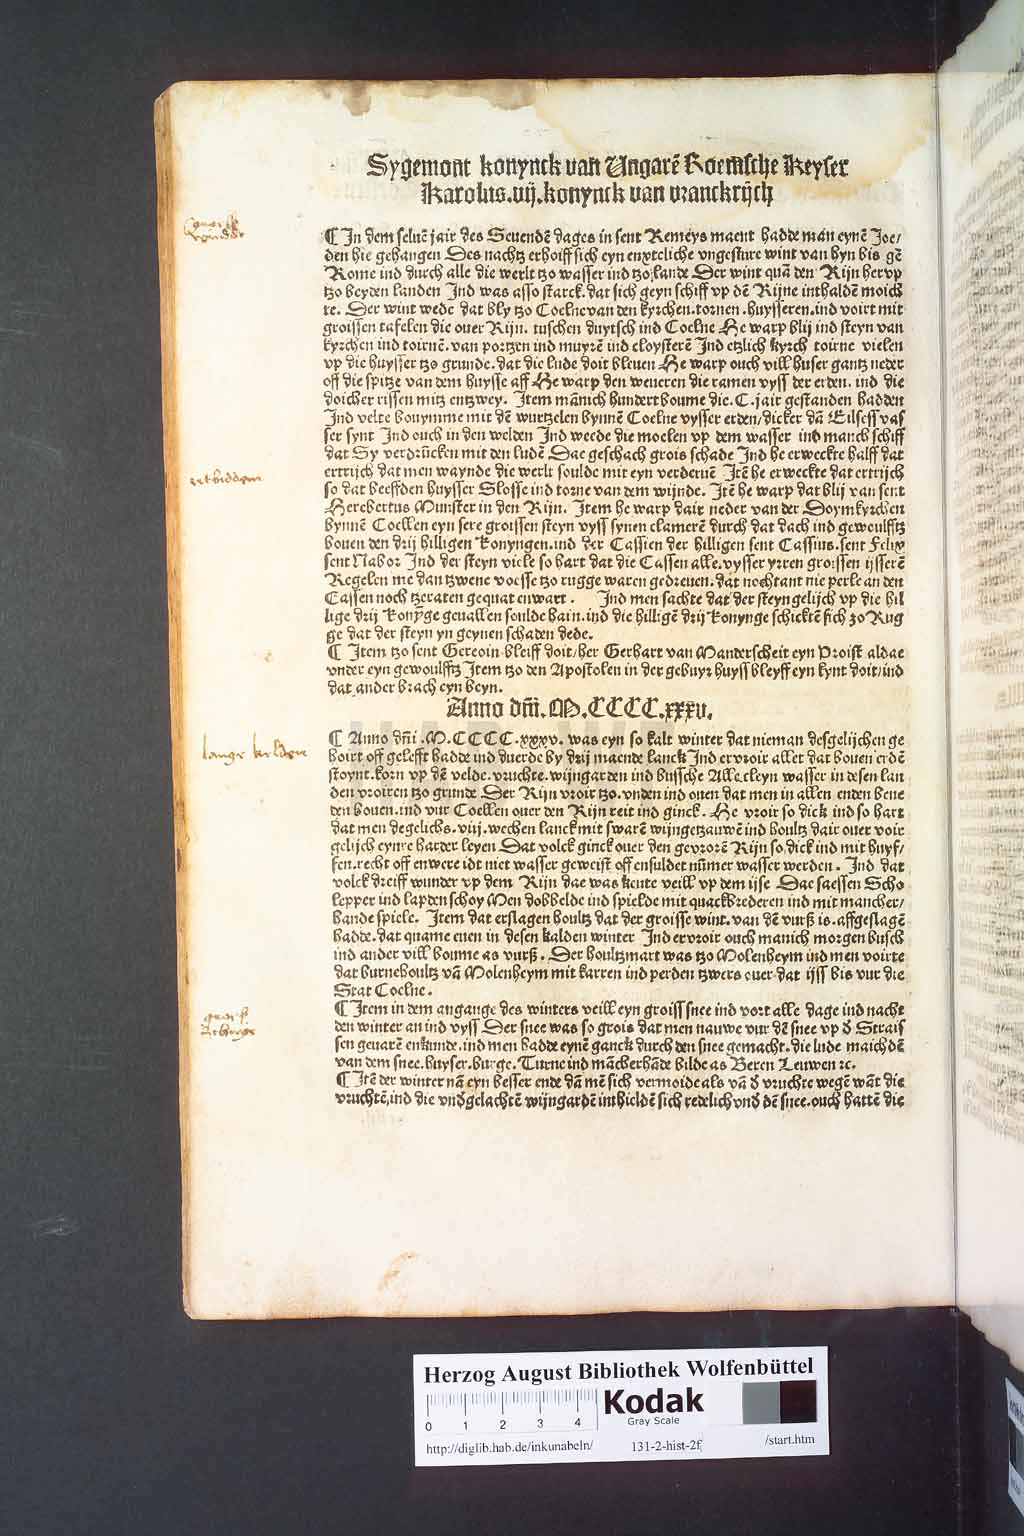 Sygemont konynck van Ungarē Roemsche Keyser
Karolus.vij.konynck van vranckrijch
¶ In dem seluē jair des Seuendē dages in sent Remeys maent hadde man eynē Joe/
den hie gehangen Des nachtz erhoiff sich eyn enxtcliche vngesture wint van hyn bis gē
Rome ind durch alle die werlt tzo wasser ind tzo lande Der wint quā den Rijn her vp
tzo beyden landen Ind was also starck.dat sich geyn schiff vp dē Rijne inthaldē moich
te. Der wint wede dat bly tzo Coelne van den kyrchen.tornen.huysseren.ind voirt mit
groissen tafelen die ouer Rijn. tuschen duytsch ind Coelne He warp blij ind steyn van
kyrchen ind toirnē.van portzen ind muyrē ind cloysterē Ind etzlich kyrch toirne vielen
vp die huysser tzo grunde.dat die lude doit bleuen He warp ouch vill huser gantz neder
off die spitze van dem huysse aff He warp den weueren die ramen vyss der erden. ind die
doicher rissen mitz entzwey. Item mānich hundert boume die.C.jair gestanden hadden
Ind velte bouymme mit dē wurtzelen bynnē Coelne vysser erden/dicker dā Eilfess vas
ser synt Ind ouch in den welden Ind weede die moelen vp dem wasser ind manch schiff
dat Sy verdrūcken mit den ludē Dae geschach grois schade Ind he erweckte halff dat
ertrijch dat men waynde die werlt soulde mit eyn verderuē Itē he erweckte dat ertrijch
so dat beefften huysser Slosse ind torne van dem wijnde. Itē he warp dat blij van sent
Herebertus Munster in den Rijn. Item he warp dair neder van der Doymkyrchen
bynnē Coellen eyn sere groissen steyn vyss synen clamerē durch dat dach ind gewoulfftz
bouen den drij hilligen Konyngen.ind der Cassien der hilligen sent Cassius.sent Felix
sent Nabor Ind der steyn viele so hart dat die Cassen alle.vysser yrren groissen ijsserē
Regelen me dan tzwene voesse tzo rugge waren gedreuen.dat nochtant nie perle an den
Cassen noch tzeraten gequat enwart. Ind men sachte dat der steyn gelijch vp die hil
lige drij Konyge geuallen soulde hain.ind die hilligē drij Konynge schicktē sich zo Rug
ge dat der steyn yn geynen schaden dede.
¶ Item tzo sent Gereoin bleiff doit/her Gerhart van Manderscheit eyn Proist aldae
vnder eyn gewoulfftz Item tzo den Apostolen in der gebuyr huyss bleyff eyn kynt doit/ind
dat ander brach eyn beyn.
Anno dm̄.M.CCCC.xxxv.
¶ Anno dn̄i.M.CCCC.xxxv. was eyn so kalt winter dat nieman desgelijchen ge
hoirt off gelefft hadde ind duerde by drij maende lanck Ind ervroir allet dat bouen erdē
stoynt.korn vp dē velde.vruchte.wijngarden ind bussche Alle.cleyn wasser in desen lan
den vroiren tzo grunde Der Rijn vroir tzo.vnden ind ouen dat men in allen enden bene
den bouen.ind vur Coellen ouer den Rijn reit ind ginck. He vroir so dick ind so hart
dat men degelichs.viij.wechen lanck mit swarē wijngetzauwē ind houltz dair ouer voir
gelijch eynre harder leyen Dat volck ginck ouer den gevrorē Rijn so dick ind mit huyf/
fen.recht off en were idt niet wasser geweist off ensuldet nūmer wasser werden. Ind dat
volck dreiff wunder vp dem Rijn dae was keute veill vp dem ijse Dae saessen Scho
lepper ind lapden schoy Men dobbelde ind spielde mit quackbrederen ind mit mancher/
hande spiele. Item dat erslagen houltz dat der groisse wint.van dē vurß is.affgeslagē
hadde.dat quame euen in desen kalden winter Ind ervroir ouch manich morgen busch
ind ander vill boume as vurß. Der houltzmart was tzo Molenheym ind men voirte
dat burnehoultz vā Molenheym mit karren ind perden tzwers ouer dat ijss bis vur die
Stat Coelne.
¶ Item in dem angange des winters veill eyn groiss snee ind vort alle dage ind nacht
den winter an ind vyss Der snee was so grois dat men nauwe vur dē snee vp d̄ Strais
sen geuarē enkunde.ind men hadde eynē ganck durch den snee gemacht.die lude maichdē
van dem snee.huyser.burge. Turne ind mācherhāde bilde as Beren Leuwen ꝛc.
¶ Itē der winter nā eyn besser ende dā mē sich vermoide als vā d̄ vruchte wegē wāt die
vruchtē.ind die vnd̄gelachtē wijngardē inthieldē sich redelich vnd̄ dē snee.ouch hattē die
lange kelden
Herzog August Bibliothek Wolfenbüttel
0 1 2 3 4
Kodak
Gray Scale
http://diglib.hab.de/inkunabeln/ 131-2-hist-2f /start.htm